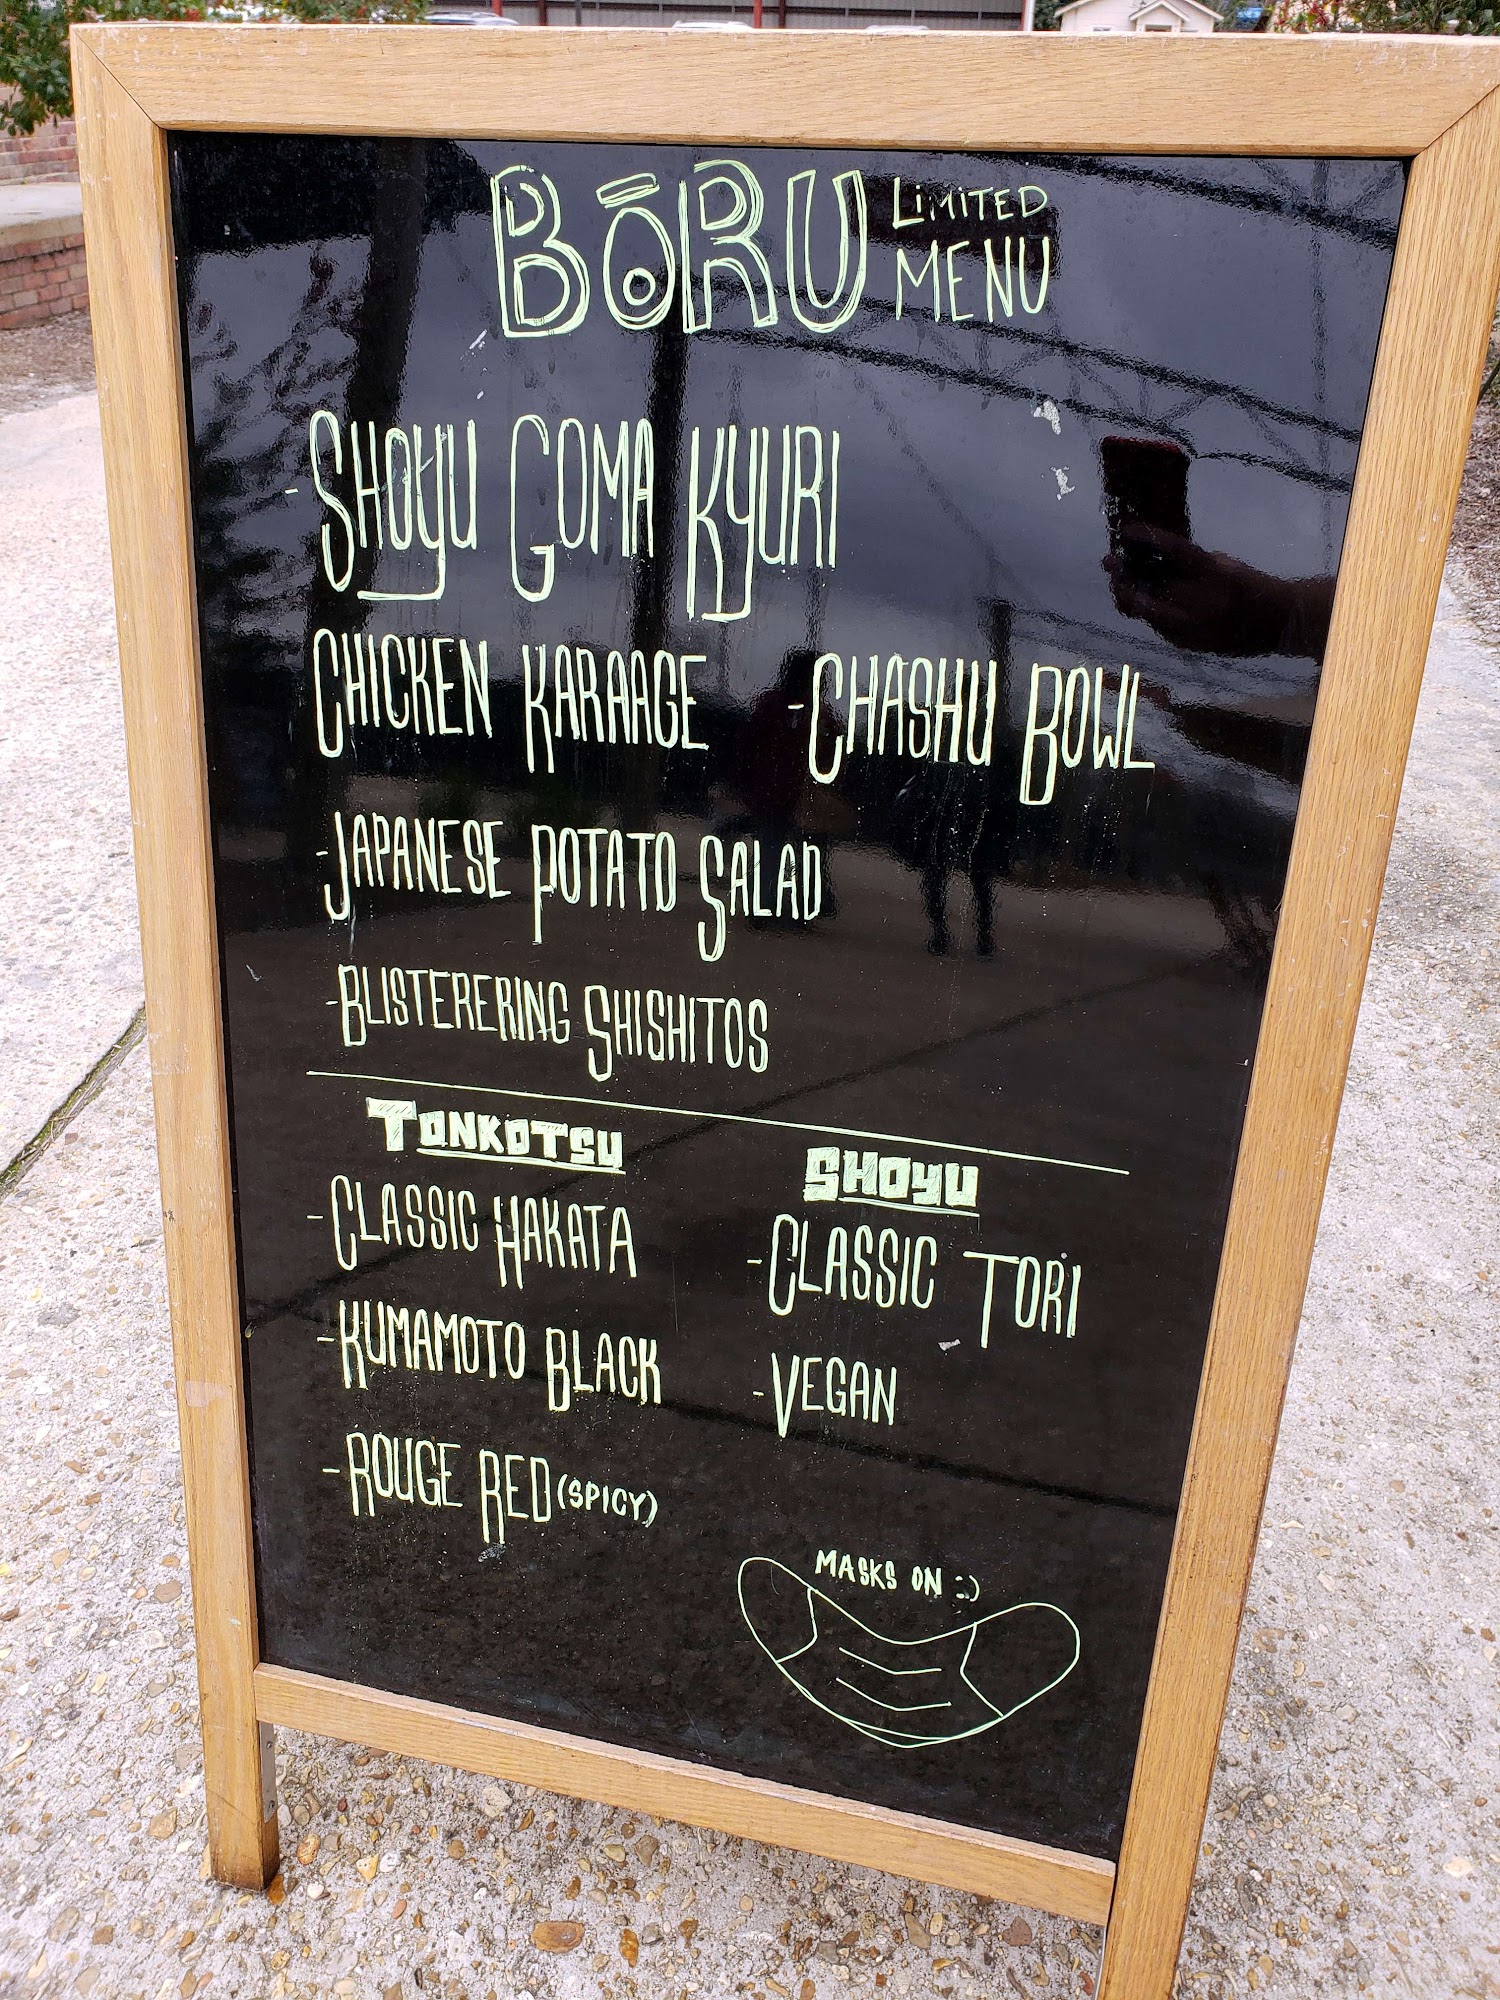 BōRU LIMITED
MENU
-SHOYU GOMA KYURI
CHICKEN KARAAGE -CHASHU BOWL
-JAPANESE POTATO SALAD
-BLISTERERING SHISHITOS
TONKOTSU SHOYU
-CLASSIC HAKATA -CLASSIC TORI
-KUMAMOTO BLACK -VEGAN
-ROUGE RED (SPICY)
MASKS ON :)